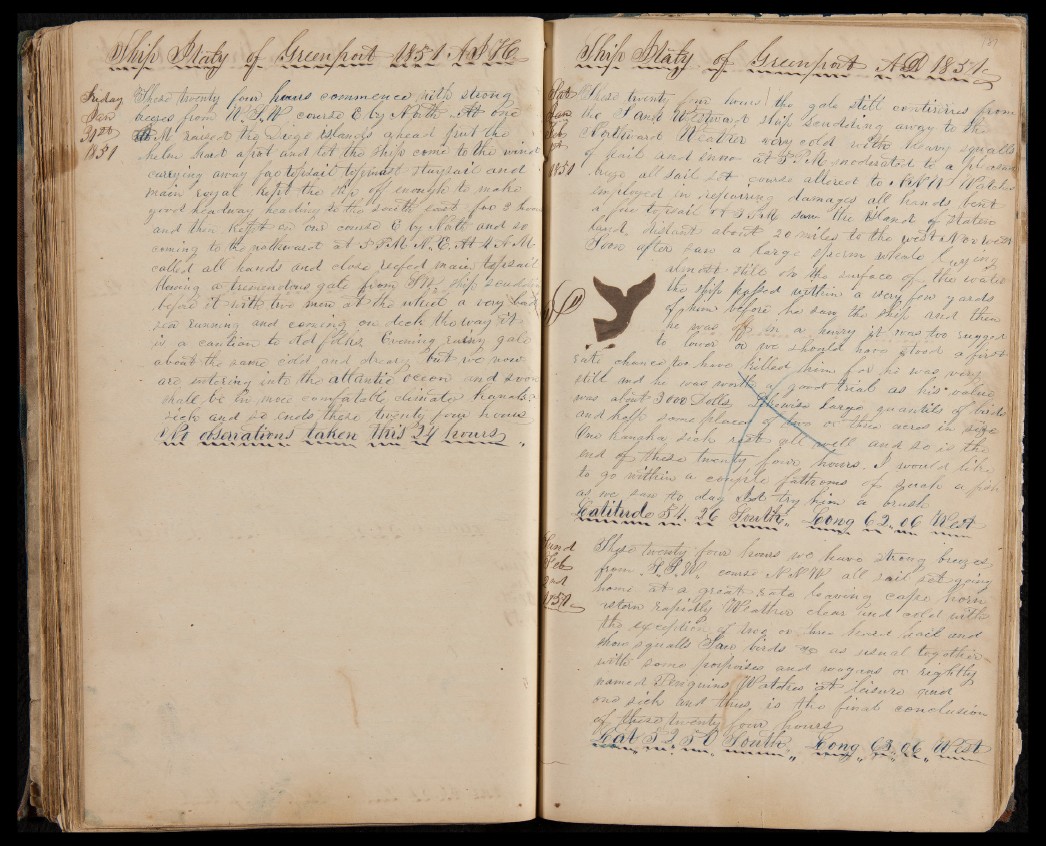 Ship Italy of Greenport 1851
Friday These twenty four hours commence with strong
Jan from W.S.W course E by North At one
31st A.M raised Diego islands ahead put the
1851 helm hard aport and let the ship come to the wind
carrying away fore topsail topmast staysail and
main royal kept the ship off enough to make
good headway heading to the south east for 2 hours
and then kept on our course E by North and so
coming to the northward at P.M N.E. At 4 A.M
called all hands and close reefed main topsail
blowing a tremendous gale from S.W. ship scudding
before it with two men at the wheel a very bad
sea running and coming on deck the way it
is a caution to old folks Evening gale
about the same cold and dreary but we now
are entering into the atlantic ocean and soon
shall be in more comfortable climates
sick and so ends these twenty four hours
No observations taken this 24 hours
Ship Italy of Greenport 1851
Sat These twenty four hours the gale still continues from
Feb the S and Westward ship scudding away to the
1st Northward Weather very cold with heavy squalls
1851 of hail and snow at P.M moderated to a pleasant
breeze all sail set course altered to N.N.W. Watches
employed in repairing damages all hands bent
a fore topsail A.M saw the Island of Staten
land, distant about 20 miles to the west Nor west
Soon after saw a large sperm whale laying
almost still on the surface of the water
the ship passed within a very few yards
of him before he saw the ship and then
he was off in a hurry it was too rugged
to lower or we should have stood a first
rate chance to have killed him for he was very
still and he was worth a good trial as his value
was about 3000 Dolls Likewise large quantity of birds
and kelp some places of two or three acres in size
One kanaka sick rest all well and so is the
end of these twenty four hours. I would like
to go within a couple fathoms of such a fish
as we saw to day Ide try him a brush
Latitude 54.26 South Long 62.06 West
Sund These twenty four hours we have strong breezes
Feb from S.S.W. course N N W all sail set going
2nd home at a great rate leaving cape horn
1851 astern rapidly Weather clear and cold with
the exception of two or three hail and
snow squalls Saw birds as usual together
with some porpoises and or rightly
named Penguins Watches at leisure and
one sick and thus is the final conclusion
of these twenty four hours
Lat 52.50 South Long 63.06 West